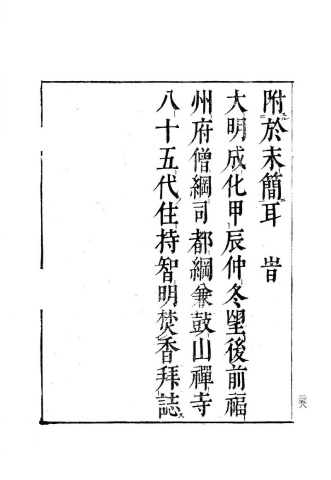 附於末簡耳　旹
大明成化甲辰仲冬望後前福
州府僧綱司都綱兼鼓山禪寺
八十五代住持智明焚香拜誌